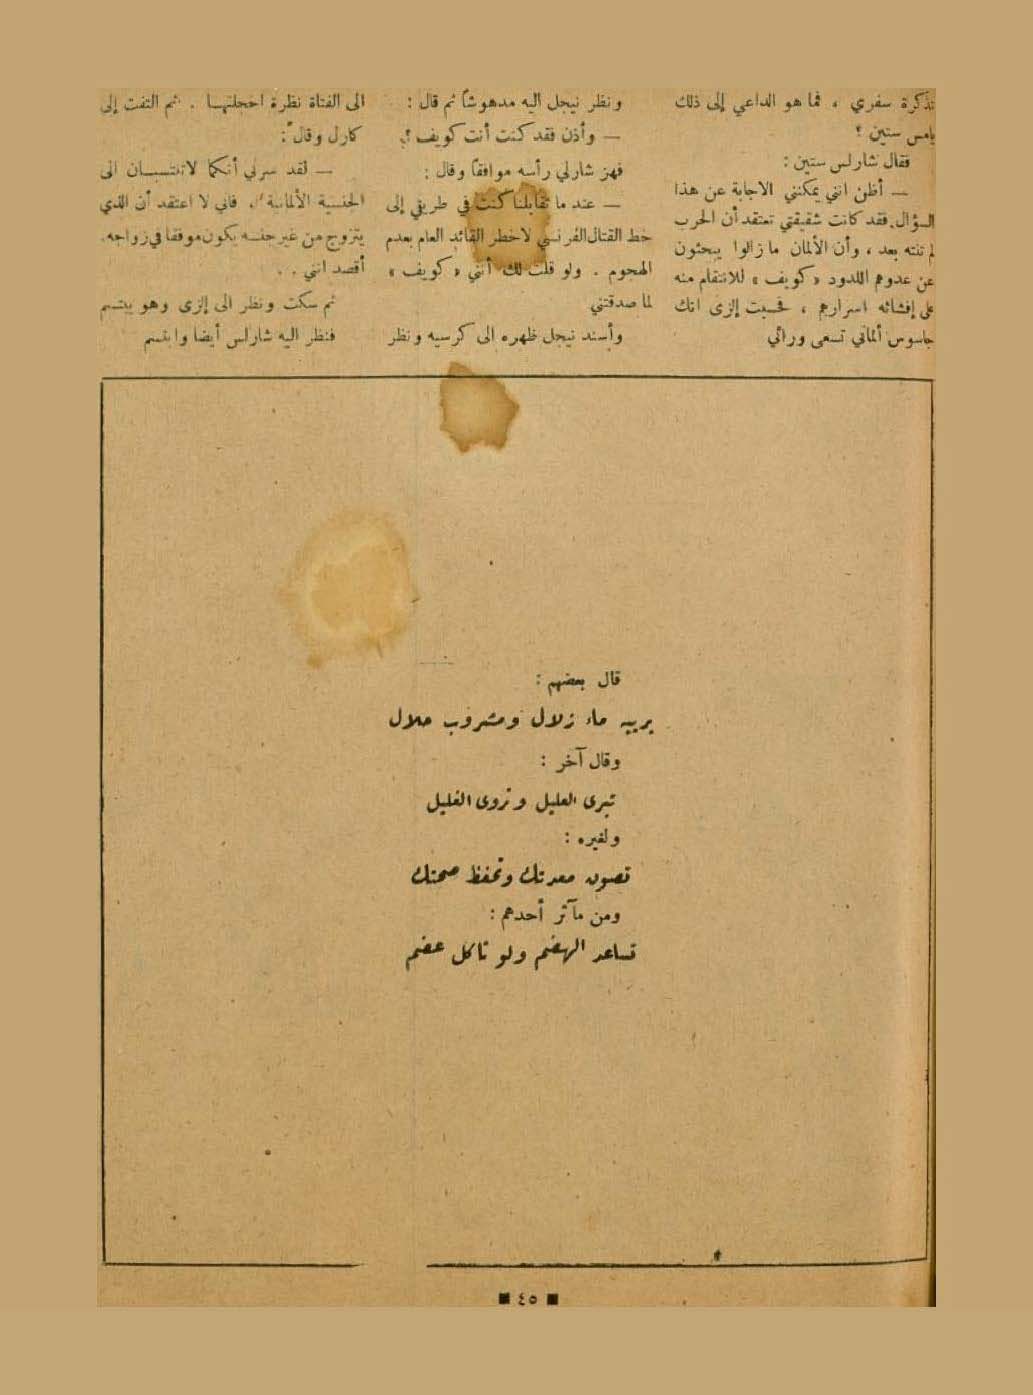 تذكرة سفري ، فما هو الداعي إلى ذلك
يامس ستين ؟
فقال شارلس ستين :
— أظن انني يمكنني الاجابة عن هذا
السؤال. فقد كانت شقيقتي تعتقد أن الحرب
لم تنته بعد ، وأن الألمان ما زالوا يبحثون
عن عدوهم اللدود « كويف » للانتقام منه
على إفشائه اسرارهم ، فحسبت إلزى انك
جاسوس ألماني تسعى ورائي
ونظر نيجل اليه مدهوشاً ثم قال :
— وأذن فقد كنت أنت كويف ؟
فهز شارلي رأسه موافقاً وقال :
— عند ما تقابلنا كنت في طريقي إلى
خط القتال الفرنسي لاخطر القائد العام بعدم
الهجوم . ولو قلت لك أنني « كويف »
لما صدقتني
وأسند نيجل ظهره الى كرسيه ونظر
الى الفتاة نظرة اخجلتها . ثم التفت إلى
كارل وقال :
— لقد سرني أنكما لاتنتسبان الى
الجنسية الألمانية ، فاني لا اعتقد أن الذي
يتزوج من غير جنسه يكون موفقا في زواجه.
أقصد انني . .
ثم سكت ونظر الى إلزى وهو يبتسم
فنظر اليه شارلس أيضا وابتسم
قال بعضهم :
بربيه ماء زلال ومشروب حلال
وقال آخر :
تبرى العليل وتروى الغليل
ولغيره :
تصون معدتك وتحفظ صحتك
ومن مآثر أحدهم :
تساعد الهضم ولو تاكل عضم
■ ٤٥ ■